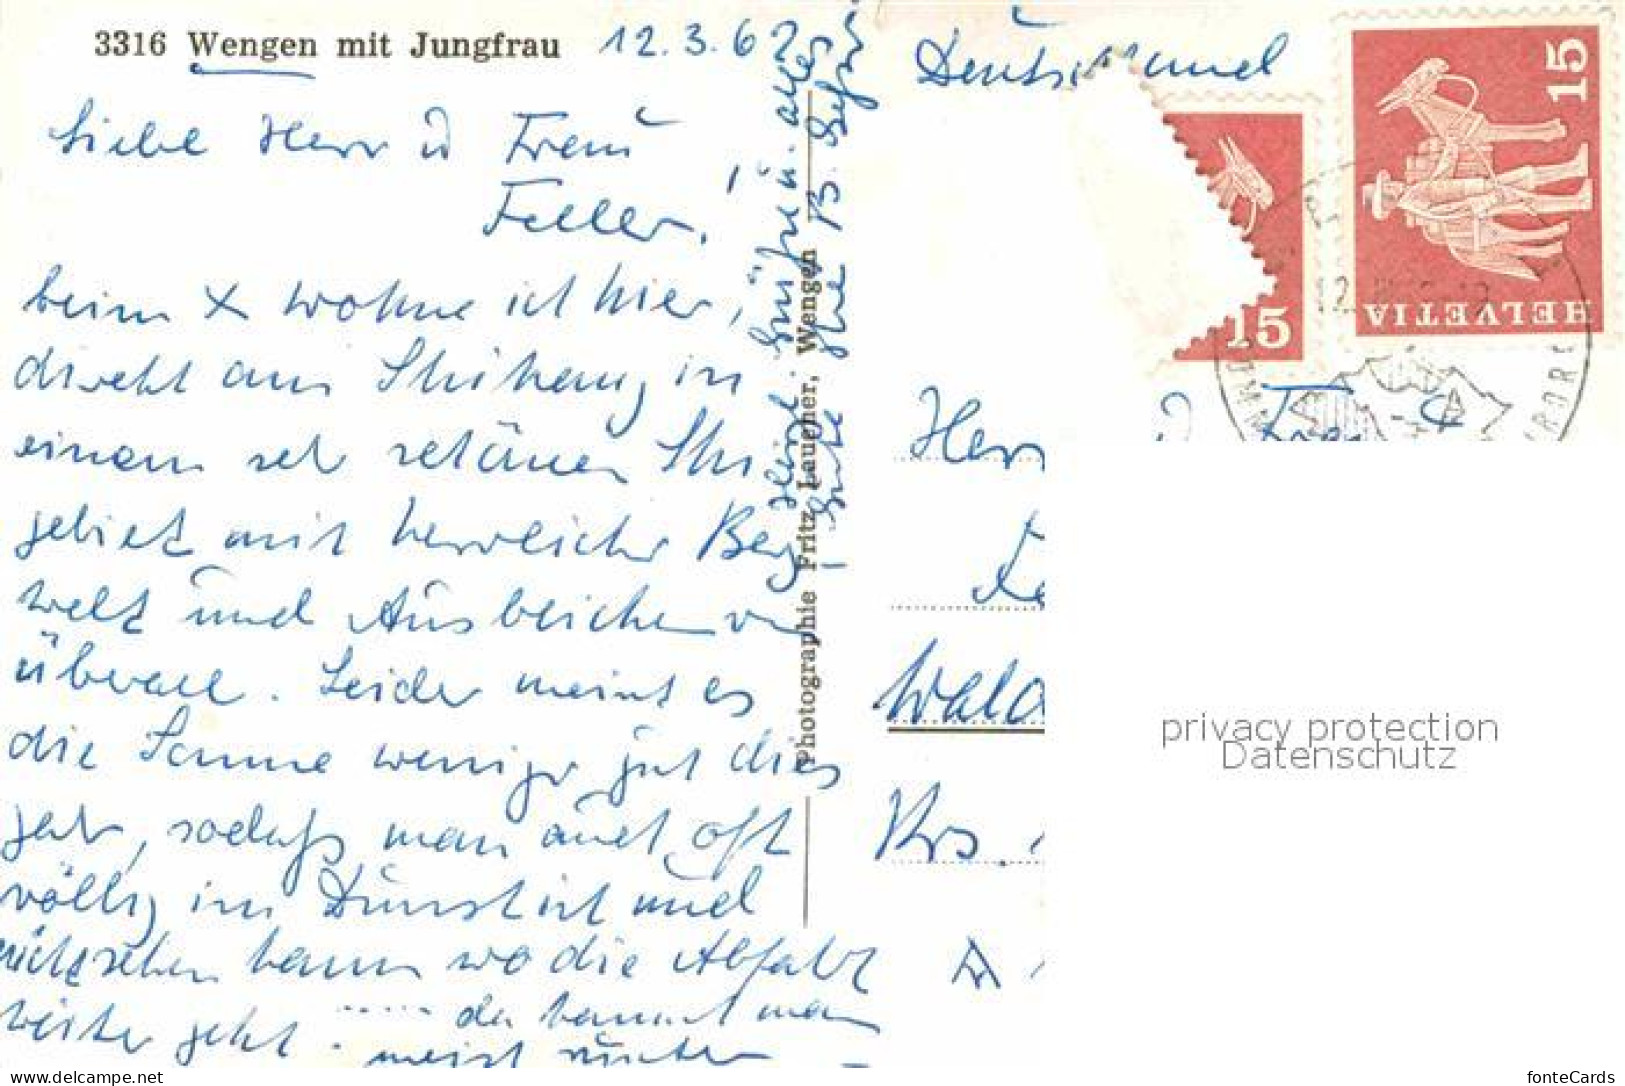 3316 Wengen mit Jungfrau 12.3.62
Liebe Herr u Frau
Feller!
beim X wohne ich hier,
direkt am Skihang in
einem sehr schönen Ski
gebiet mit herrlicher Berg
welt und Ausblicken von
überall. Leider meint es
die Sonne weniger gut dies
Jahr, sodaß man auch oft
völlig im Dunst ist und
nicht sehen kann wo die Abfahrt
weiter geht ..... da kommt man
meist runter
Herzl. Grüße u. alles
Gute Ihre B.
Photographie Fritz Lauener, Wengen
Deutschland
15
HELVETIA
15
12.
Herr
Wald
Krs.
privacy protection
Datenschutz
www.delcampe.net
fonteCards